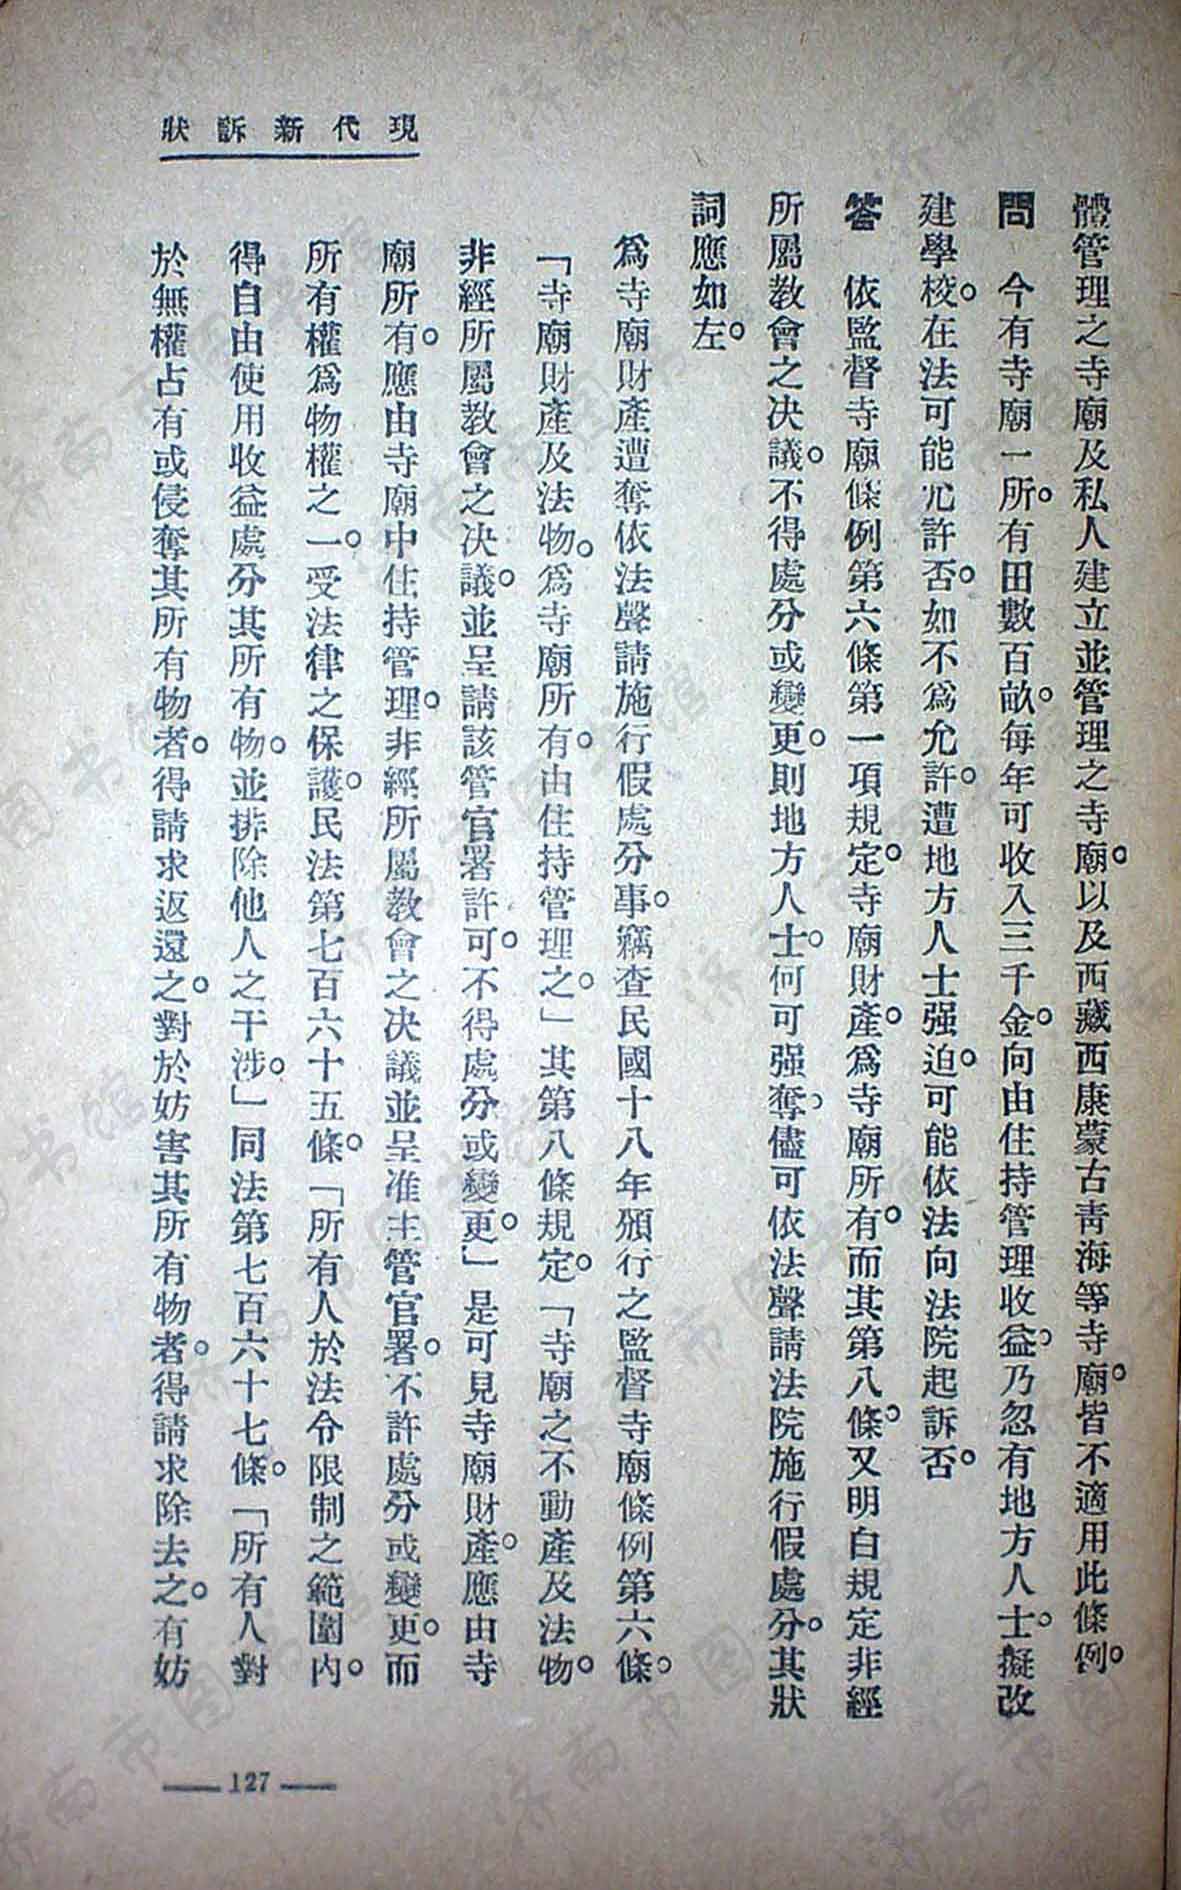 現代新訴狀
體管理之寺廟及私人建立並管理之寺廟。以及西藏西康蒙古靑海等寺廟。皆不適用此條例。
問　今有寺廟一所。有田數百畝。每年可收入三千金。向由住持管理收益。乃忽有地方人士。擬改
建學校。在法可能允許否。如不爲允許。遭地方人士强迫。可能依法向法院起訴否。
答　依監督寺廟條例第六條第一項規定。寺廟財產。爲寺廟所有。而其第八條。又明白規定非經
所屬教會之决議。不得處分或變更。則地方人士。何可强奪。儘可依法聲請法院施行假處分。其狀
詞應如左。
爲寺廟財產遭奪依法聲請施行假處分事。竊查民國十八年頒行之監督寺廟條例第六條。
「寺廟財產及法物。爲寺廟所有。由住持管理之。」其第八條規定。「寺廟之不動產及法物。
非經所屬教會之决議。並呈請該管官署許可。不得處分或變更。」是可見寺廟財產。應由寺
廟所有。應由寺廟中住持管理。非經所屬教會之决議並呈准主管官署。不許處分或變更。而
所有權爲物權之一。受法律之保護。民法第七百六十五條。「所有人於法令限制之範圍內。
得自由使用收益處分其所有物。並排除他人之干涉。」同法第七百六十七條。「所有人對
於無權占有或侵奪其所有物者。得請求返還之。對於妨害其所有物者。得請求除去之。有妨
127
济南市图书馆